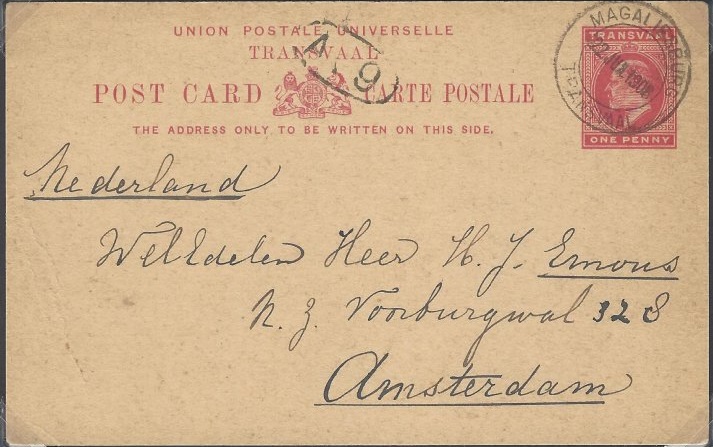 UNION POSTALE UNIVERSELLE
TRANSVAAL
POST CARD CARTE POSTALE
THE ADDRESS ONLY TO BE WRITTEN ON THIS SIDE.
TRANSVAAL
ONE PENNY
MAGALIESBURG
TRANSVAAL
A 9
Nederland
WelEdelen Heer H. J. Emous
N. Z. Voorburgwal 328
Amsterdam